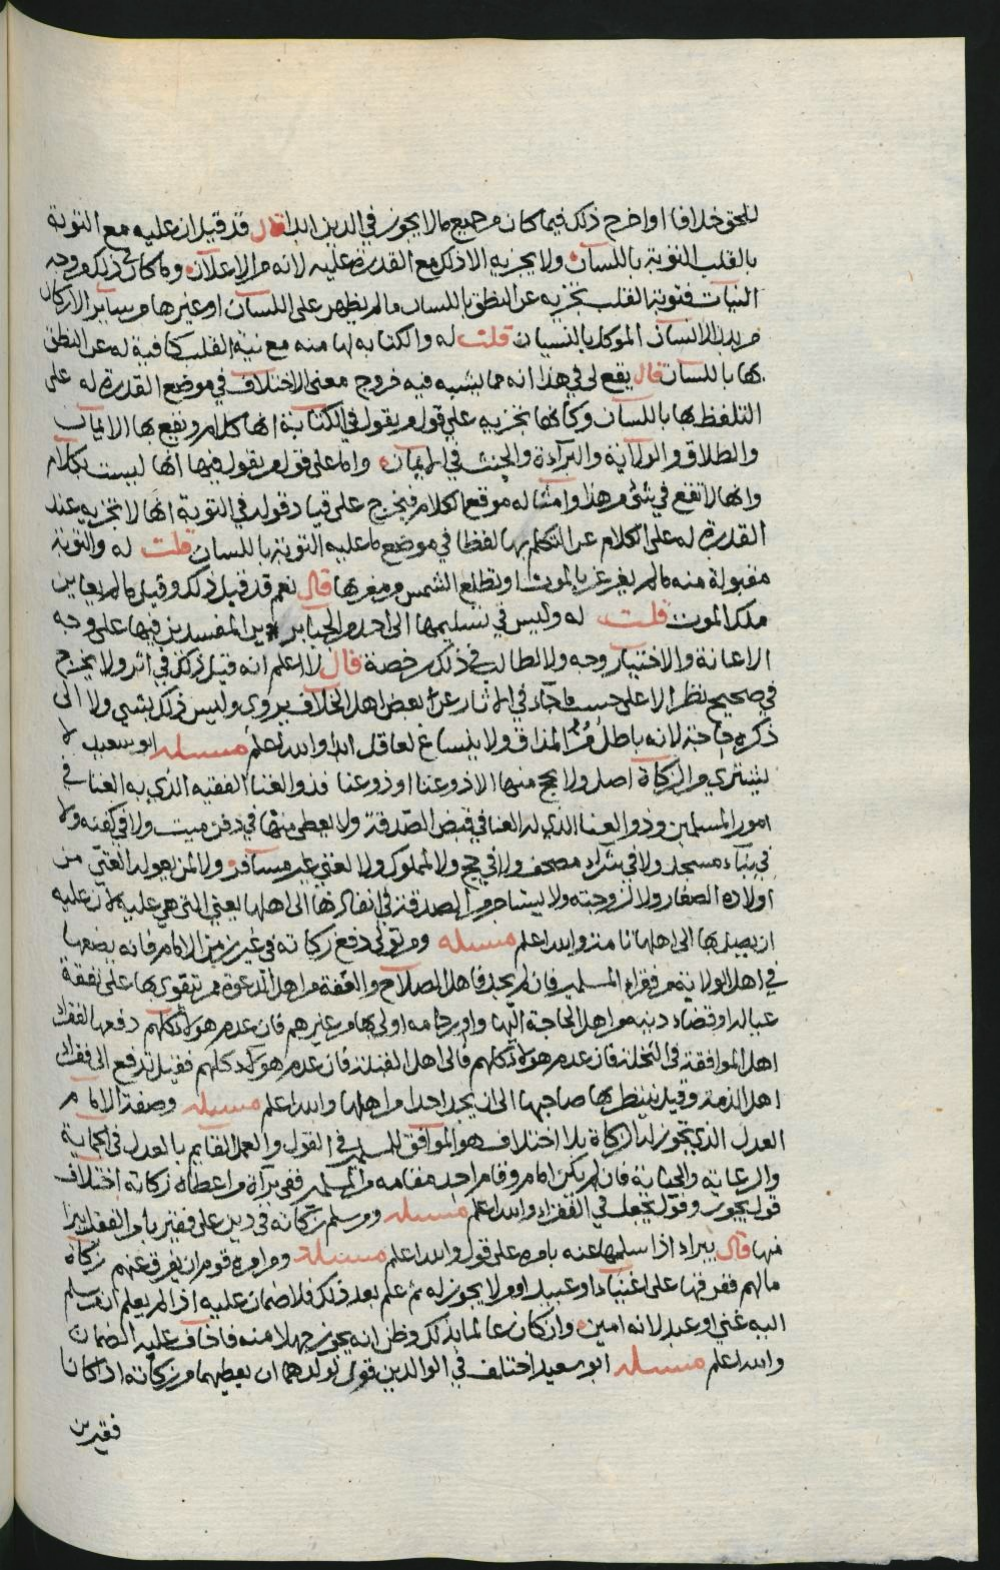 للحق خلافا او اخرج ذلك فيما كان من جميع ما لا يجوز في الدين ابدا قال قد قيل ان عليه مع التوبة
بالقلب التوبة باللسان ولا يجزيه الا ذلك مع القدرة عليه لانه من الاعلان وما كان ذلك من وجه
النيات فتوبة القلب تجزيه عن النطق باللسان ما لم يظهر على اللسان او غيرها من سائر الاركان
من بدن الانسان الموكل بالنسيان قلت له والكتابة لها منه مع نية القلب كافية له عن النطق
بها باللسان قال يقع لي في هذا انه مما يشبه فيه خروج معنى الاختلاف في موضع القدرة له على
التلفظ بها باللسان وكأنها تجزيه على قول من يقول في الكتابة انها كلام ويقع بها الايمان
والطلاق والولاية والبرآءة والحنث في الايمان واما على قول من يقول فيها انها ليست بكلام
وانها لا تقع في شئ من هذا وامثاله موقع الكلام فيخرج على قياد قوله في التوبة انها لا تجزيه عند
القدرة له على الكلام عن التكلم بها لفظا في موضع ما عليه التوبة باللسان قلت له والتوبة
مقبولة منه ما لم يغرغر بالموت او تطلع الشمس من مغربها قال نعم قد قيل ذلك وقيل ما لم يعاين
ملك الموت قلت له وليس في تسليمها الى احد من الجبابر المفسدين فيها على وجه
الاعانة والاختيار وجه ولا لطالب في ذلك رخصة قال لا اعلم انه قيل ذلك في اثر ولا يخرج
في صحيح نظر الا على حسب ما جاء في الآثار عن بعض اهل الخلاف يروى وليس ذلك بشي ولا الى
ذكره حاجة لانه باطل مر المذاق ولا ينساغ لعاقل ابدا والله اعلم مسئلة ابو سعيد لا
يشتري من الزكاة اصل ولا يحج منها الا ذو عنا او ذو غنا فذو الغنا الفقيه الذي به الغنا في
امور المسلمين وذو العنا الذي له العنا في قبض الصدقة ولا يعطى منها في دفن ميت ولا في كفنه ولا
في بناء مسجد ولا في شراء مصحف ولا في حج ولا لمملوك ولا لغني غير مسافر ولا لمن يعوله الغني من
اولاده الصغار ولا لزوجته ولا يستاجر من الصدقة في انفاذها الى اهلها يعني التي هي عليه لان عليه
ان يصل بها الى اهلها تامة والله اعلم مسئله ومن تولى دفع زكاته في غير زمن الامام فانه يضعها
في اهل الولاية من فقراء المسلمين فان لم يجد فاهل الصلاح والعفة من اهل الدعوة ممن يتقوى بها على نفقة
عياله او قضاء دينه من اهل الحاجة اليها وارحامه اولى بها من غيرهم فان عدم هولاء كلهم دفعها لفقراء
اهل الموافقة في النحلة فان عدم هولاء كلهم فالى اهل القبلة فان عدم هولاء كلهم فقيل تدفع الى فقراء
اهل الذمة وقيل ينتظر بها صاحبها الى ان يجد احدا من اهلها والله اعلم مسئله وصفة الامام
العدل الذي تجوز له الزكاة بلا اختلاف هو الموافق للمسلمين في القول والعمل القايم بالعدل في الحماية
والرعاية والجباية فان لم يكن امام وقام احد مقامه من المسلمين ففي برآة من اعطاه زكاته اختلاف
قول يجوز وقول تجعل في الفقراء والله اعلم مسئله ومن سلم زكاته في دين على فقير بامر الفقير ايبرا
منها قال يبرا اذا سلمها عنه بامره على قول والله اعلم مسئلة ومن امره قوم ان يفرق عنهم زكاة
مالهم ففرقها على اغنياء او عبيد او من لا يجوز له ثم علم بعد ذلك فلا ضمان عليه اذا لم يعلم ان من سلم
اليه غني او عبد لانه امين وان كان عالما بذلك وظن انه يجوز جهلا منه فاخاف عليه الضمان
والله اعلم مسئله ابو سعيد اختلف في الوالدين قول لولدهما ان يعطيهما من زكاته اذا كانا
فقيرين